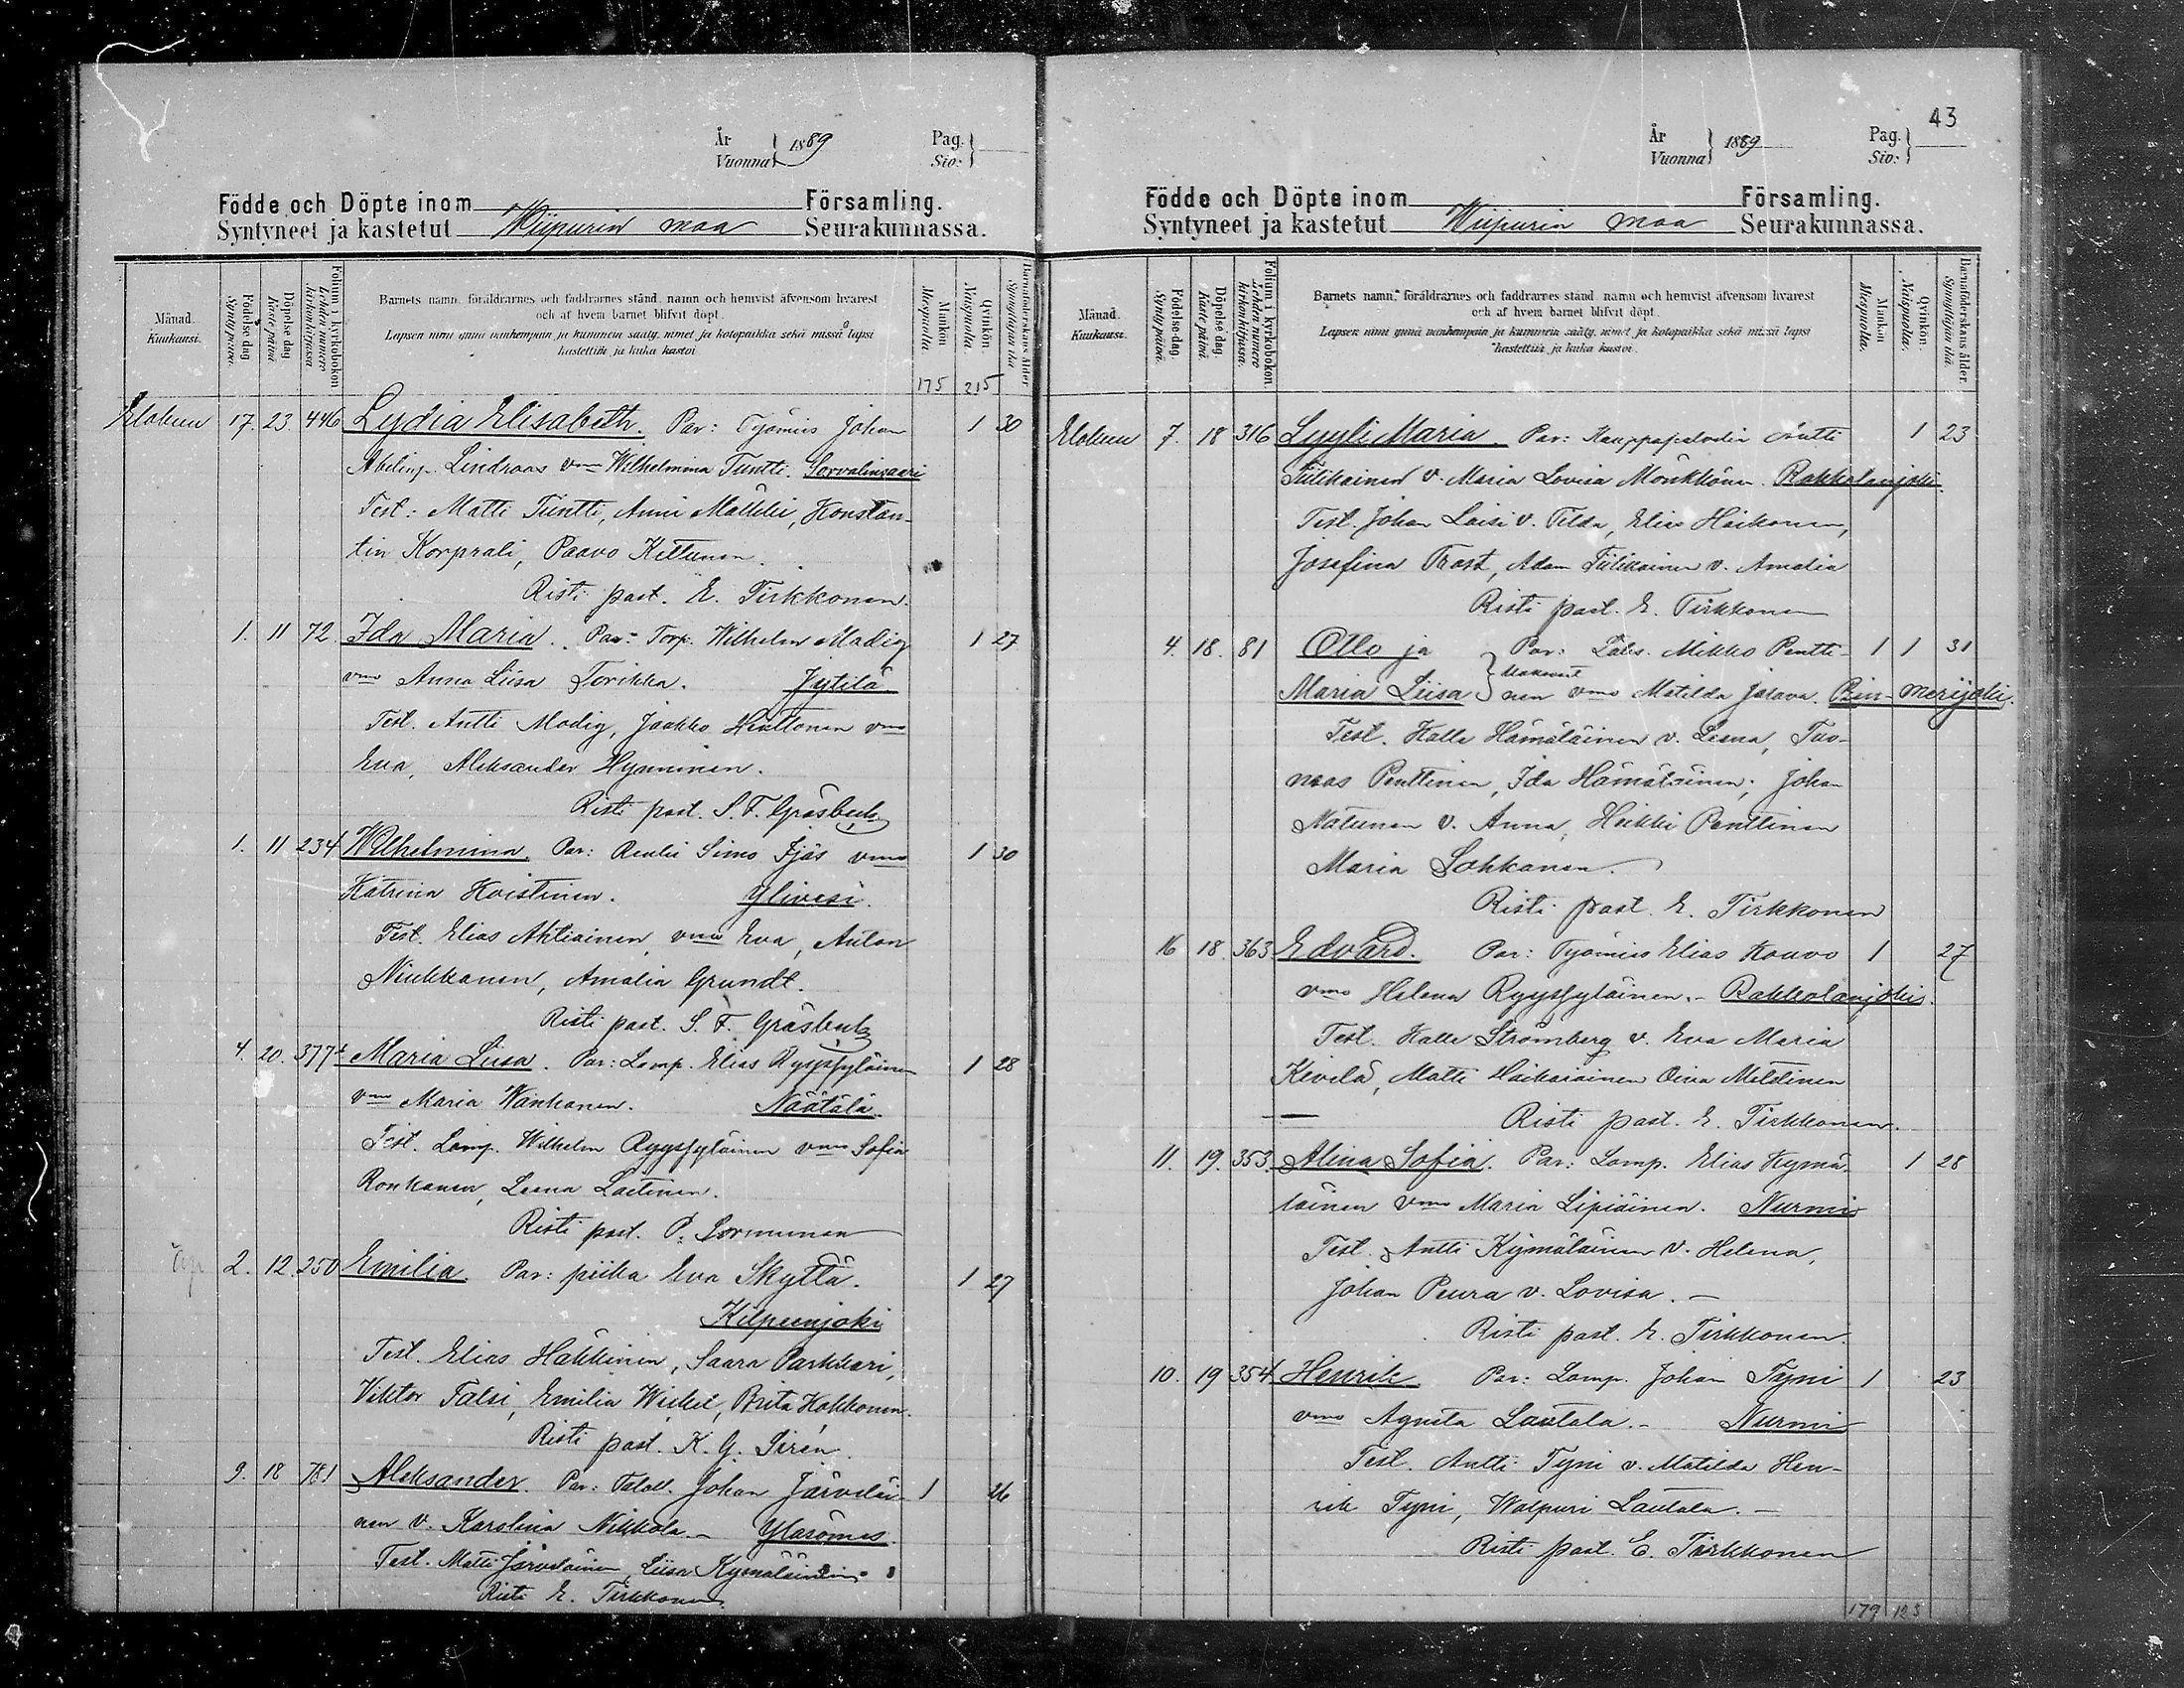 År
Vuonna } 1889
Pag.
Siv: }
Födde och Döpte inom Församling.
Syntyneet ja kastetut Wiipurin maa Seurakunnassa.
Månad. Kuukausi.
Födelse dag Syntypäivä.
Döpelse dag Kaste päivä.
Folium i kyrkobokon Lehden numero kirkonkirjassa
Barnets namn, föräldrarnes och faddrarnes stånd, namn och hemvist äfvensom hvarest
och af hvem barnet blifvit döpt.
Lapsen nimi ynnä vanhempain ja kummein sääty, nimet ja kotopaikka sekä missä lapsi
kastettiin ja kuka kastoi
Mankön Miespuolia.
Qvinkön. Naispuolia.
Barnaföderskans ålder Synnyttäjän ikä
175 215
Elokuu 17. 23. 446 Lydia Elisabeth. Par: Työmies Johan 1 30
Abelinp. Lindroos vmo Wilhelmina Tuntti. Sorvalinsaari
Test: Matti Tuntti, Anni Mälkki, Konstan-
tin Korprali, Paavo Kettunen.
Risti past. E. Tirkkonen.
1. 11 72. Ida Maria. Par: Torp. Wilhelm Modig 1 27
vmo Anna Liisa Torikka. Jytilä
Test. Antti Modig, Jaakko Henttonen vmo
Eva, Aleksander Hynninen.
Risti past. S. F. Gräsbeck
1. 11 234 Wilhelmina. Par: Renki Simo Ijäs vmo 1 30
Katrina Hoistinen. Ylivesi.
Test. Elias Ahtiainen vmo Eva, Anton
Niukkanen, Amalia Grundt.
Risti past. S. F. Gräsbeck
4. 20. 377½ Maria Liisa. Par: Lamp. Elias Ryyssyläinen 1 28
vmo Maria Wankanen. Näätälä.
Test. Lamp. Wilhelm Ryyssyläinen vmo Sofia
Ronkanen, Leena Laitinen.
Risti past. P. Sormunen
Äp. 2. 12. 250 Emilia. Par: piika Eva Skyttä. 1 27
Kilpeenjoki
Test. Elias Häkkinen, Saara Parkkari,
Viktor Talsi, Emilia Wickel, Brita Hokkonen.
Risti past. K. G. Sirén.
9. 18 781 Aleksander. Par: Taloll. Johan Järveläi- 1 26
nen v. Karolina Nikkola. - Ylasömes.
Test. Matti Järveläinen, Liisa Kymäläinen
Risti E. Tirkkonen.
43
År
Vuonna } 1889
Pag.
Siv: }
Födde och Döpte inom Församling.
Syntyneet ja kastetut Wiipurin maa Seurakunnassa.
Månad. Kuukausi.
Födelse-dag Syntypäivä.
Döpelse dag. Kaste päivä.
Folium i kyrkobokon. Lehden numero kirkonkirjassa.
Barnets namn, föräldrarnes och faddrarnes stånd, namn och hemvist äfvensom hvarest
och af hvem barnet blifvit döpt.
Lapsen nimi ynnä vanhempain ja kummein sääty, nimet ja kotopaikka sekä missä lapsi
kastettiin ja kuka kastoi.
Mankön Miespuolia.
Qvinkön. Naispuolia.
Barnaföderskans ålder. Synnyttäjän ikä.
Elokuu 7. 18 316 Lyyli Maria. Par: Kauppapalvelia Antti 1 23
Tiilikainen v. Maria Lovisa Mönkkönen. Rakkolanjoki.
Test. Johan Laisi v. Tilda, Elias Häikönen,
Josefina Trast, Adam Tiilikainen v. Amalia
Risti past. E. Tirkkonen
4. 18. 81 Otto ja Par: Talis. Mikko Pentti- 1 1 31
Maria Liisa } nen vmo Matilda Jarava. Pien-merijoki.
Test. Kalle Hämäläinen v. Leena, Tuo-
mas Penttinen, Ida Hämäläinen; Johan
Natunen v. Anna, Heikki Penttinen
Maria Sohkanen.
Risti past. E. Tirkkonen
16 18. 363 Edvard. Par: Työmies Elias Kouvo 1 27
vmo Helena Ryyssyläinen. - Rakkolanjoki.
Test. Kalle Strömberg v. Eva Maria
Kivilä, Matti Häikäiäinen Oiva Melolinen
Risti past. E. Tirkkonen.
11. 19. 353. Alma Sofia. Par: Lamp. Elias Kymä- 1 28
läinen vmo Maria Lipiäinen. Nurmi
Test. Antti Kymäläinen v. Helena,
Johan Peura v. Lovisa. -
Risti past. E. Tirkkonen.
10. 19 354 Henrik. Par: Lamp. Johan Tyni 1 23
vmo Agneta Lautala. - Nurmi
Test. Antti Tyni v. Matilda Hen-
rik Tyni, Walpuri Lautala. -
Risti past. E. Tirkkonen
179 123